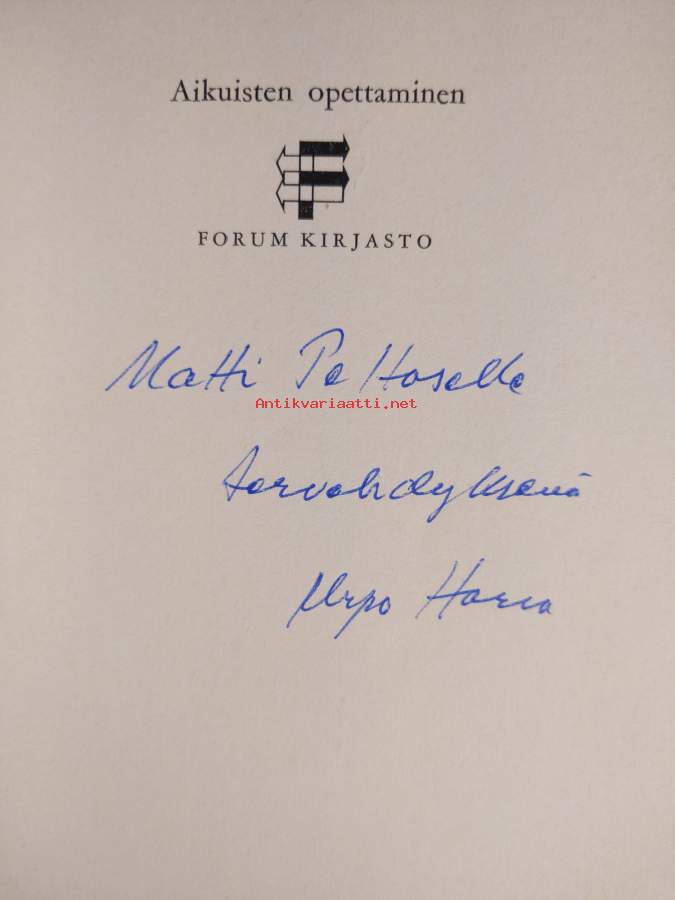 Aikuisten opettaminen
FORUM KIRJASTO
Matti Peltoselle
Antikvariaatti.net
tervehdyksenä
Urpo Harva